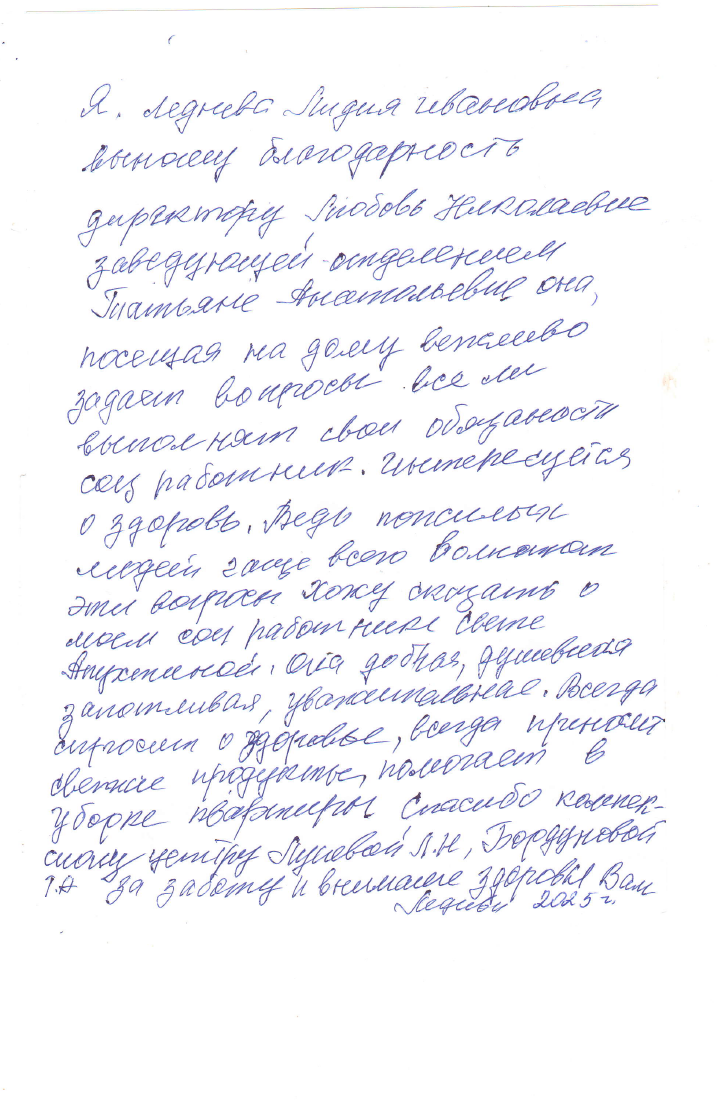 Я. Леднева Лидия Ивановна
выношу благодарность
директору Любовь Николаевне
заведующей отделением
Татьяне Анатольевне она,
посещая на дому вежливо
задает вопросы все ли
выполнят свои обязаности
соц работник. Интересуется
о здоровь. Ведь пожилых
людей чаще всего волнают
эти вопросы Хожу сказать о
моем соц работнике Свете
Апухтиной. Она добрая, душевная
заботливая, уважительная. Всегда
спросит о здоровье, всегда приносит
свежие продукты, помогает в
уборке квартиры Спасибо компек-
сному центру Лушевой Л.Н, Бордуновой
Т.А за заботу и внимание здоровья Вам
Леднева 2025 г.